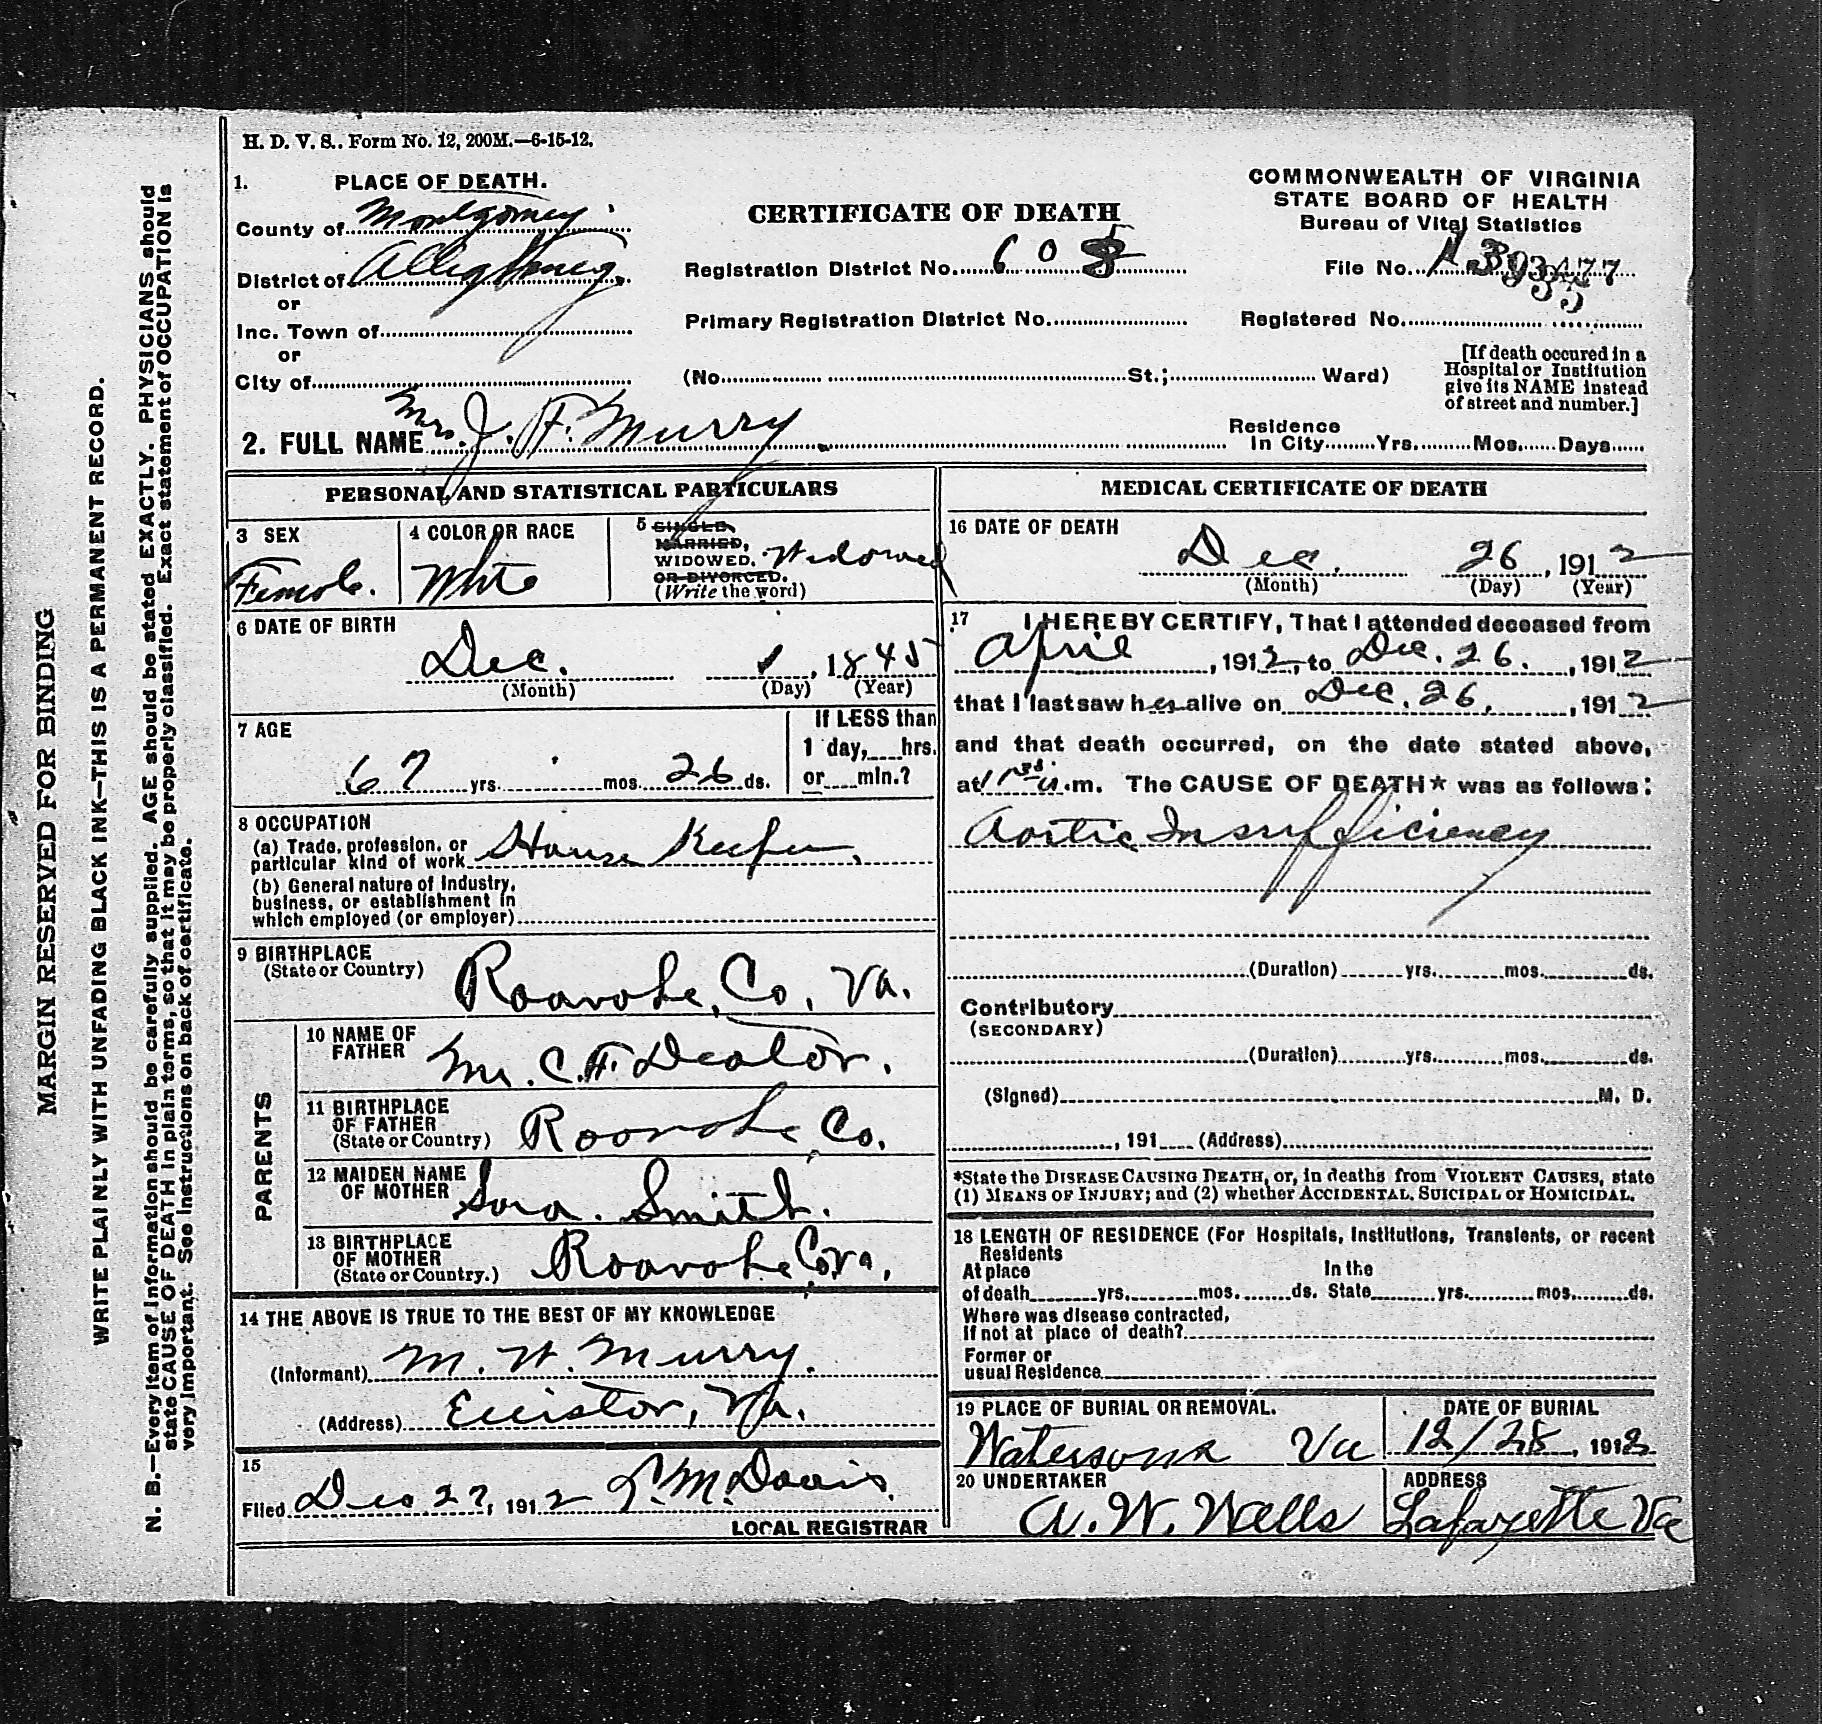 H. D. V. S.. Form No. 12, 200M.—6-15-12.
1. PLACE OF DEATH.
County of Montgomery
District of Alleghney
or
Inc. Town of
or
City of
CERTIFICATE OF DEATH
Registration District No. 608
Primary Registration District No.
(No. St.; Ward)
COMMONWEALTH OF VIRGINIA
STATE BOARD OF HEALTH
Bureau of Vital Statistics
File No.
Registered No.
[If death occured in a
Hospital or Institution
give its NAME instead
of street and number.]
2. FULL NAME Mrs. J. F. Murry.
Residence
In City Yrs. Mos. Days
PERSONAL AND STATISTICAL PARTICULARS
3 SEX
Female.
4 COLOR OR RACE
White
5 SINGLE,
MARRIED,
WIDOWED, Widowed
OR DIVORCED.
(Write the word)
6 DATE OF BIRTH
Dec. 1, 1845
(Month) (Day) (Year)
7 AGE
67 yrs. mos. 26 ds.
If LESS than
1 day, hrs.
or min.?
8 OCCUPATION
(a) Trade, profession, or
particular kind of work House Keeper.
(b) General nature of Industry,
business, or establishment in
which employed (or employer)
9 BIRTHPLACE
(State or Country) Roanoke, Co. Va.
PARENTS
10 NAME OF
FATHER Mr. C. F. Deator.
11 BIRTHPLACE
OF FATHER
(State or Country) Roanoke Co.
12 MAIDEN NAME
OF MOTHER Sara. Smith.
13 BIRTHPLACE
OF MOTHER
(State or Country.) Roanoke Co, Va,
14 THE ABOVE IS TRUE TO THE BEST OF MY KNOWLEDGE
(Informant) M. W. Murry.
(Address) , Va.
15
Filed Dec 27, 1912 M. Davis.
LOCAL REGISTRAR
MEDICAL CERTIFICATE OF DEATH
16 DATE OF DEATH
Dec. 26, 1912
(Month) (Day) (Year)
17 I HEREBY CERTIFY, That I attended deceased from
April, 1912, to Dec. 26., 1912
that I last saw her alive on Dec. 26, 1912
and that death occurred, on the date stated above,
at a.m. The CAUSE OF DEATH* was as follows:
Aortic Insufficiency
(Duration) yrs. mos. ds.
Contributory
(SECONDARY)
(Duration) yrs. mos. ds.
(Signed) M. D.
, 191 (Address)
*State the DISEASE CAUSING DEATH, or, in deaths from VIOLENT CAUSES, state
(1) MEANS OF INJURY; and (2) whether ACCIDENTAL, SUICIDAL or HOMICIDAL.
18 LENGTH OF RESIDENCE (For Hospitals, Institutions, Transients, or recent
Residents
At place In the
of death yrs. mos. ds. State yrs. mos. ds.
Where was disease contracted,
If not at place of death?
Former or
usual Residence
19 PLACE OF BURIAL OR REMOVAL. DATE OF BURIAL
Va 12/28, 1912
20 UNDERTAKER ADDRESS
A. W. Wells Lafayette Va
MARGIN RESERVED FOR BINDING
WRITE PLAINLY WITH UNFADING BLACK INK—THIS IS A PERMANENT RECORD.
N. B.—Every item of Information should be carefully supplied. AGE should be stated EXACTLY. PHYSICIANS should
state CAUSE OF DEATH in plain terms, so that it may be properly classified. Exact statement of OCCUPATION is
very important. See Instructions on back of certificate.